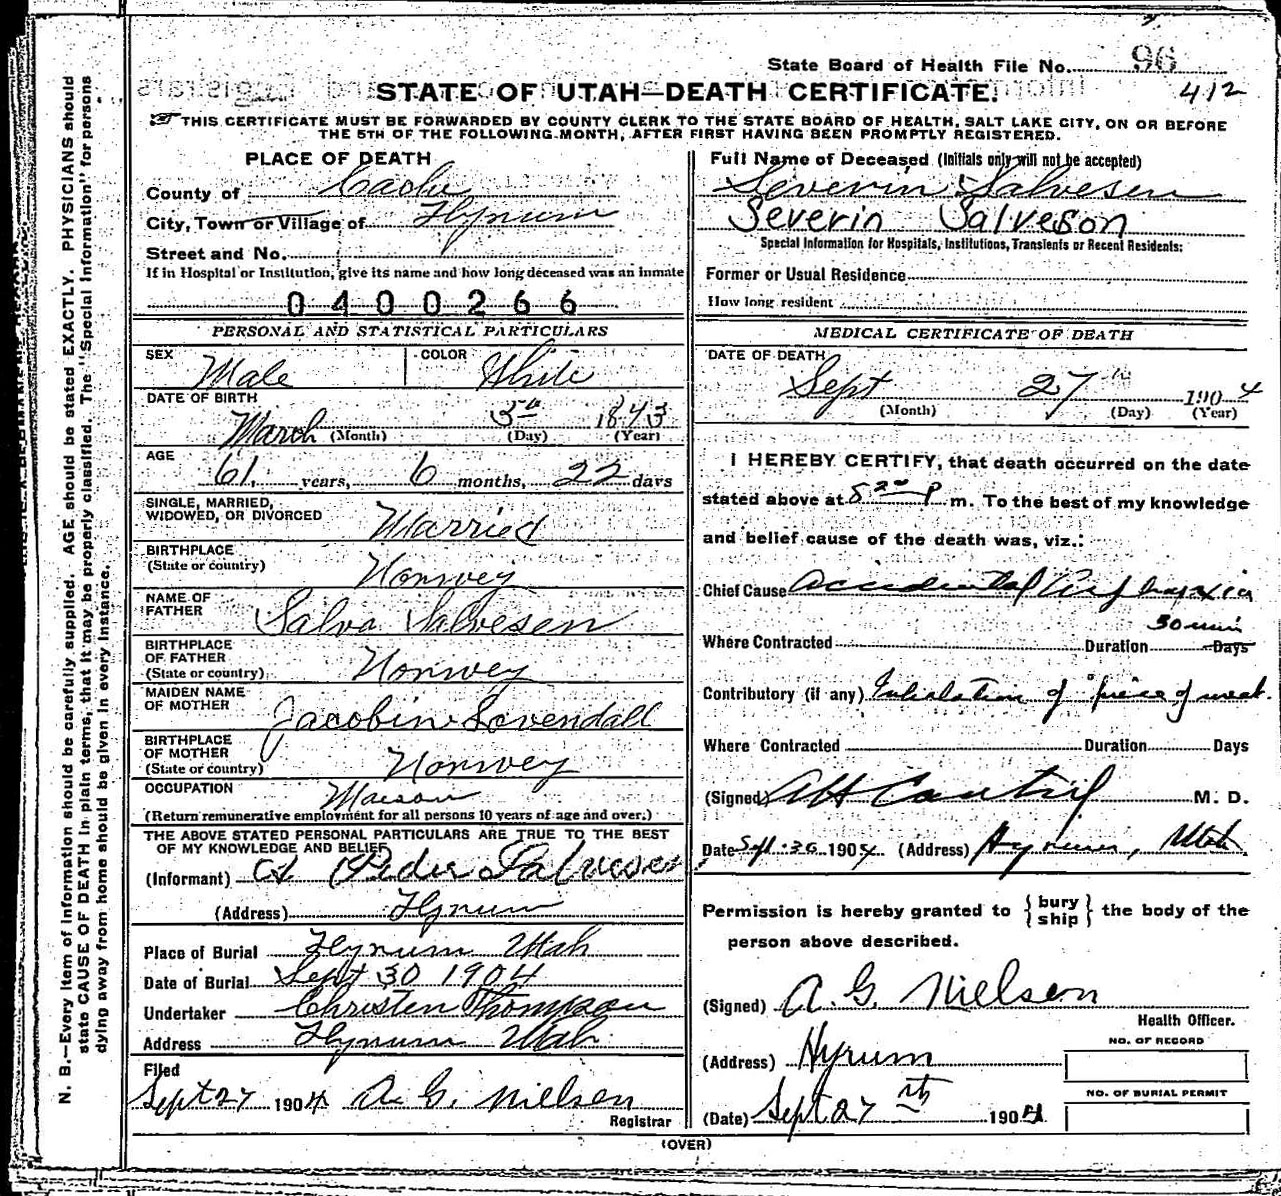 State Board of Health File No. 96
412
STATE OF UTAH—DEATH CERTIFICATE.
THIS CERTIFICATE MUST BE FORWARDED BY COUNTY CLERK TO THE STATE BOARD OF HEALTH, SALT LAKE CITY, ON OR BEFORE
THE 5TH OF THE FOLLOWING MONTH, AFTER FIRST HAVING BEEN PROMPTLY REGISTERED.
PLACE OF DEATH
County of Cache
City, Town or Village of Hyrum
Street and No.
If in Hospital or Institution, give its name and how long deceased was an inmate
0400266
PERSONAL AND STATISTICAL PARTICULARS
SEX Male COLOR White
DATE OF BIRTH
March (Month) 5th (Day) 1843 (Year)
AGE
61 years, 6 months, 22 days
SINGLE, MARRIED,
WIDOWED, OR DIVORCED Married
BIRTHPLACE
(State or country) Norwey
NAME OF
FATHER Salva Salvesen
BIRTHPLACE
OF FATHER
(State or country) Norwey
MAIDEN NAME
OF MOTHER Jacobine Lovendall
BIRTHPLACE
OF MOTHER
(State or country) Norwey
OCCUPATION Mason
(Return remunerative employment for all persons 10 years of age and over.)
THE ABOVE STATED PERSONAL PARTICULARS ARE TRUE TO THE BEST
OF MY KNOWLEDGE AND BELIEF
(Informant) Peder Salvesen
(Address) Hyrum
Place of Burial Hyrum Utah
Date of Burial Sept 30 1904
Undertaker Christen Thompson
Address Hyrum Utah
Filed
Sept 27 1904 A. G. Nielsen
Registrar
Full Name of Deceased (Initials only will not be accepted)
Severin Salvesen
Severin Salveson
Special Information for Hospitals, Institutions, Transients or Recent Residents:
Former or Usual Residence
How long resident
MEDICAL CERTIFICATE OF DEATH
DATE OF DEATH
Sept 27th 1904
(Month) (Day) (Year)
I HEREBY CERTIFY, that death occurred on the date
stated above at 8 20 P m. To the best of my knowledge
and belief cause of the death was, viz.:
Chief Cause Accidental Asphyxia
30 min
Where Contracted Duration Days
Contributory (if any) Inhalation of piece of meat.
Where Contracted Duration Days
(Signed) M. D.
Date Sept. 30 1904 (Address) Hyrum, Utah.
Permission is hereby granted to { bury ship } the body of the
person above described.
(Signed) A. G. Nielsen
Health Officer.
(Address) Hyrum
NO. OF RECORD
NO. OF BURIAL PERMIT
(Date) Sept 27th 1904
(OVER)
N. B.—Every item of information should be carefully supplied. AGE should be stated EXACTLY. PHYSICIANS should
state CAUSE OF DEATH in plain terms, that it may be properly classified. The "Special Information" for persons
dying away from home should be given in every instance.